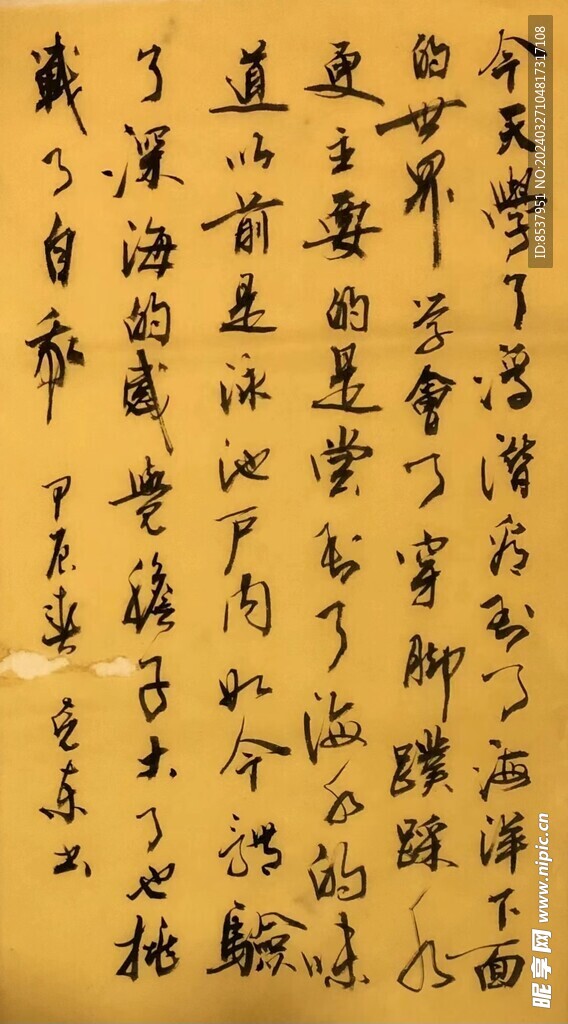 今天學了浮潛看到了海洋下面
的世界学會了穿脚蹼踩水
更主要的是尝到了海水的味
道以前是泳池戶内如今體驗
了深海的感覺膽子大了也挑
戰了自我
甲辰春 克東书
ID:8537951 NO:20240327104817317108
昵享网 www.nipic.cn